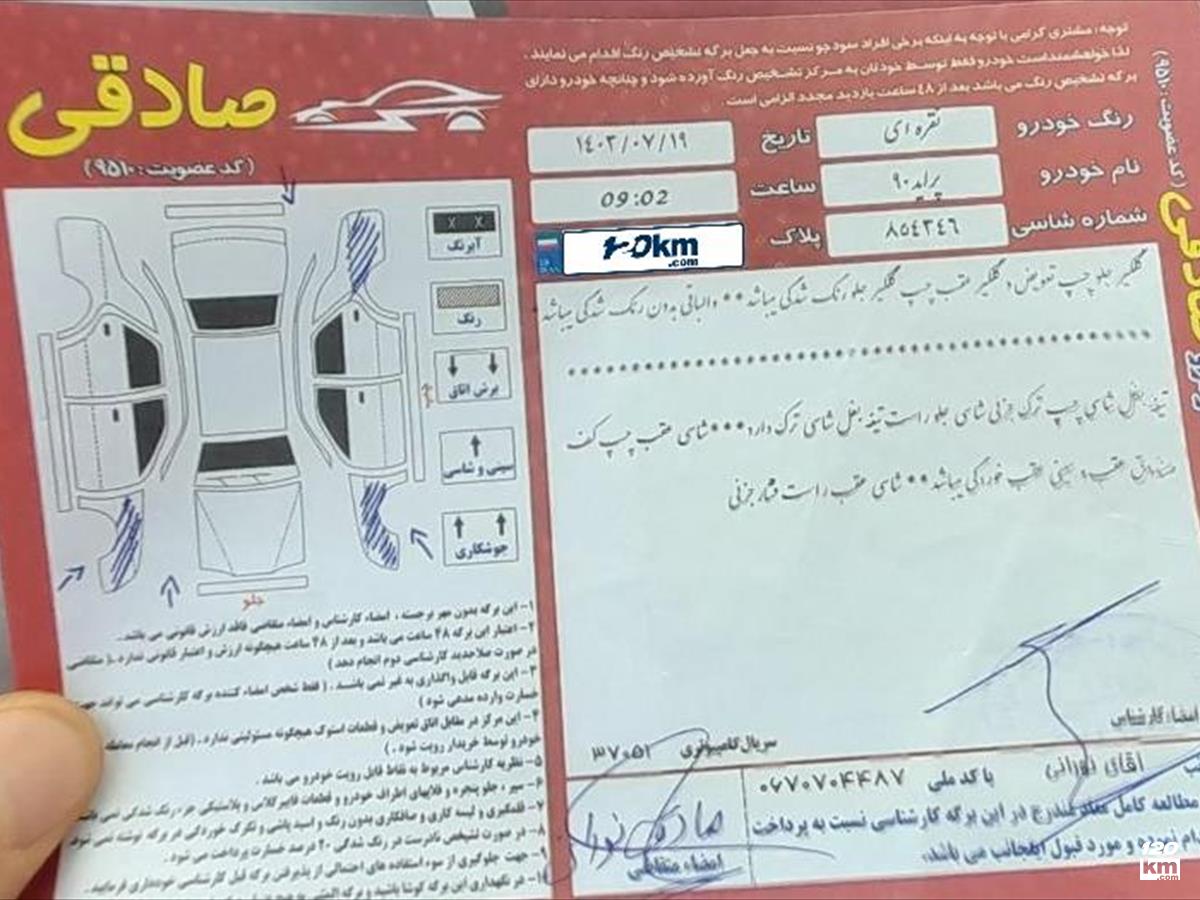 توجه: مشتری گرامی با توجه به اینکه برخی افراد سودجو نسبت به جعل برگه تشخیص رنگ اقدام می نمایند.
لذا خواهشمنداست خودرو فقط توسط خودتان به مرکز تشخیص رنگ آورده شود و چنانچه خودرو دارای
برگه تشخیص رنگ می باشد بعد از ۴۸ ساعت بازدید مجدد الزامی است.
صادقی
(کد عضویت: ۹۵۱۰)
رنگ خودرو نقره ای
تاریخ ۱۴۰۳/۰۷/۱۹
نام خودرو پراید ۹۰
ساعت 09:02
شماره شاسی ۸۵۴۳۴۶
پلاک
120km
.com
گلگیر جلو چپ تعویض و گلگیر عقب چپ گلگیر جلو رنگ شدگی میباشد ** والباقی بدون رنگ شدگی میباشد
تیغه بغل شاسی چپ ترک جزئی شاسی جلو راست تیغه بغل شاسی ترک دارد***شاسی عقب چپ کف
صندوق عقب و سینی عقب خوردگی میباشد** شاسی عقب راست فشار جزئی
X X
آبرنگ
رنگ
برش اتاق
سینی و شاسی
جوشکاری
جلو
۱- این برگه بدون مهر برجسته، امضاء کارشناس و امضاء متقاضی فاقد ارزش قانونی می باشد.
۲- اعتبار این برگه ۴۸ ساعت می باشد و بعد از ۴۸ ساعت هیچگونه ارزش و اعتبار قانونی ندارد.( متقاضی
در صورت صلاحدید کارشناسی دوم انجام دهد )
۳- این برگه قابل واگذاری به غیر نمی باشد. ( فقط شخص امضاء کننده برگه کارشناسی می تواند جهت
خسارت وارده مدعی شود )
۴- این مرکز در مقابل اتاق تعویض و قطعات استوک هیچگونه مسئولیتی ندارد. (قبل از انجام معامله
خودرو توسط خریدار رویت شود. )
۵- نظریه کارشناس مربوط به نقاط قابل رویت خودرو می باشد.
۶- سپر، جلو پنجره و قلابهای اطراف خودرو و قطعات فایبرگلاس و پلاستیکی جزء رنگ شدگی نمی باشد
۷- قلمگیری و لیسه گیری و صافکاری بدون رنگ و اسید پاشی و تگرگ خوردگی در برگه نوشته نمی شود
۸- در صورت تشخیص نادرست در رنگ شدگی ۲۰ درصد خسارت پرداخت می شود.
۹- جهت جلوگیری از سوء استفاده های احتمالی از پذیرفتن برگه قبل کارشناسی خودداری فرمایید.
۱۰- در نگهداری این برگه کوشا باشید
امضاء کارشناس
سریال کامپیوتری ۳۷۰۵۱
آقای نورانی با کد ملی ۰۶۷۰۷۰۴۴۸۷
مطالعه کامل مفاد مندرج در این برگه کارشناسی نسبت به پرداخت
نموده و مورد قبول اینجانب می باشد.
امضاء متقاضی
120
km
.com